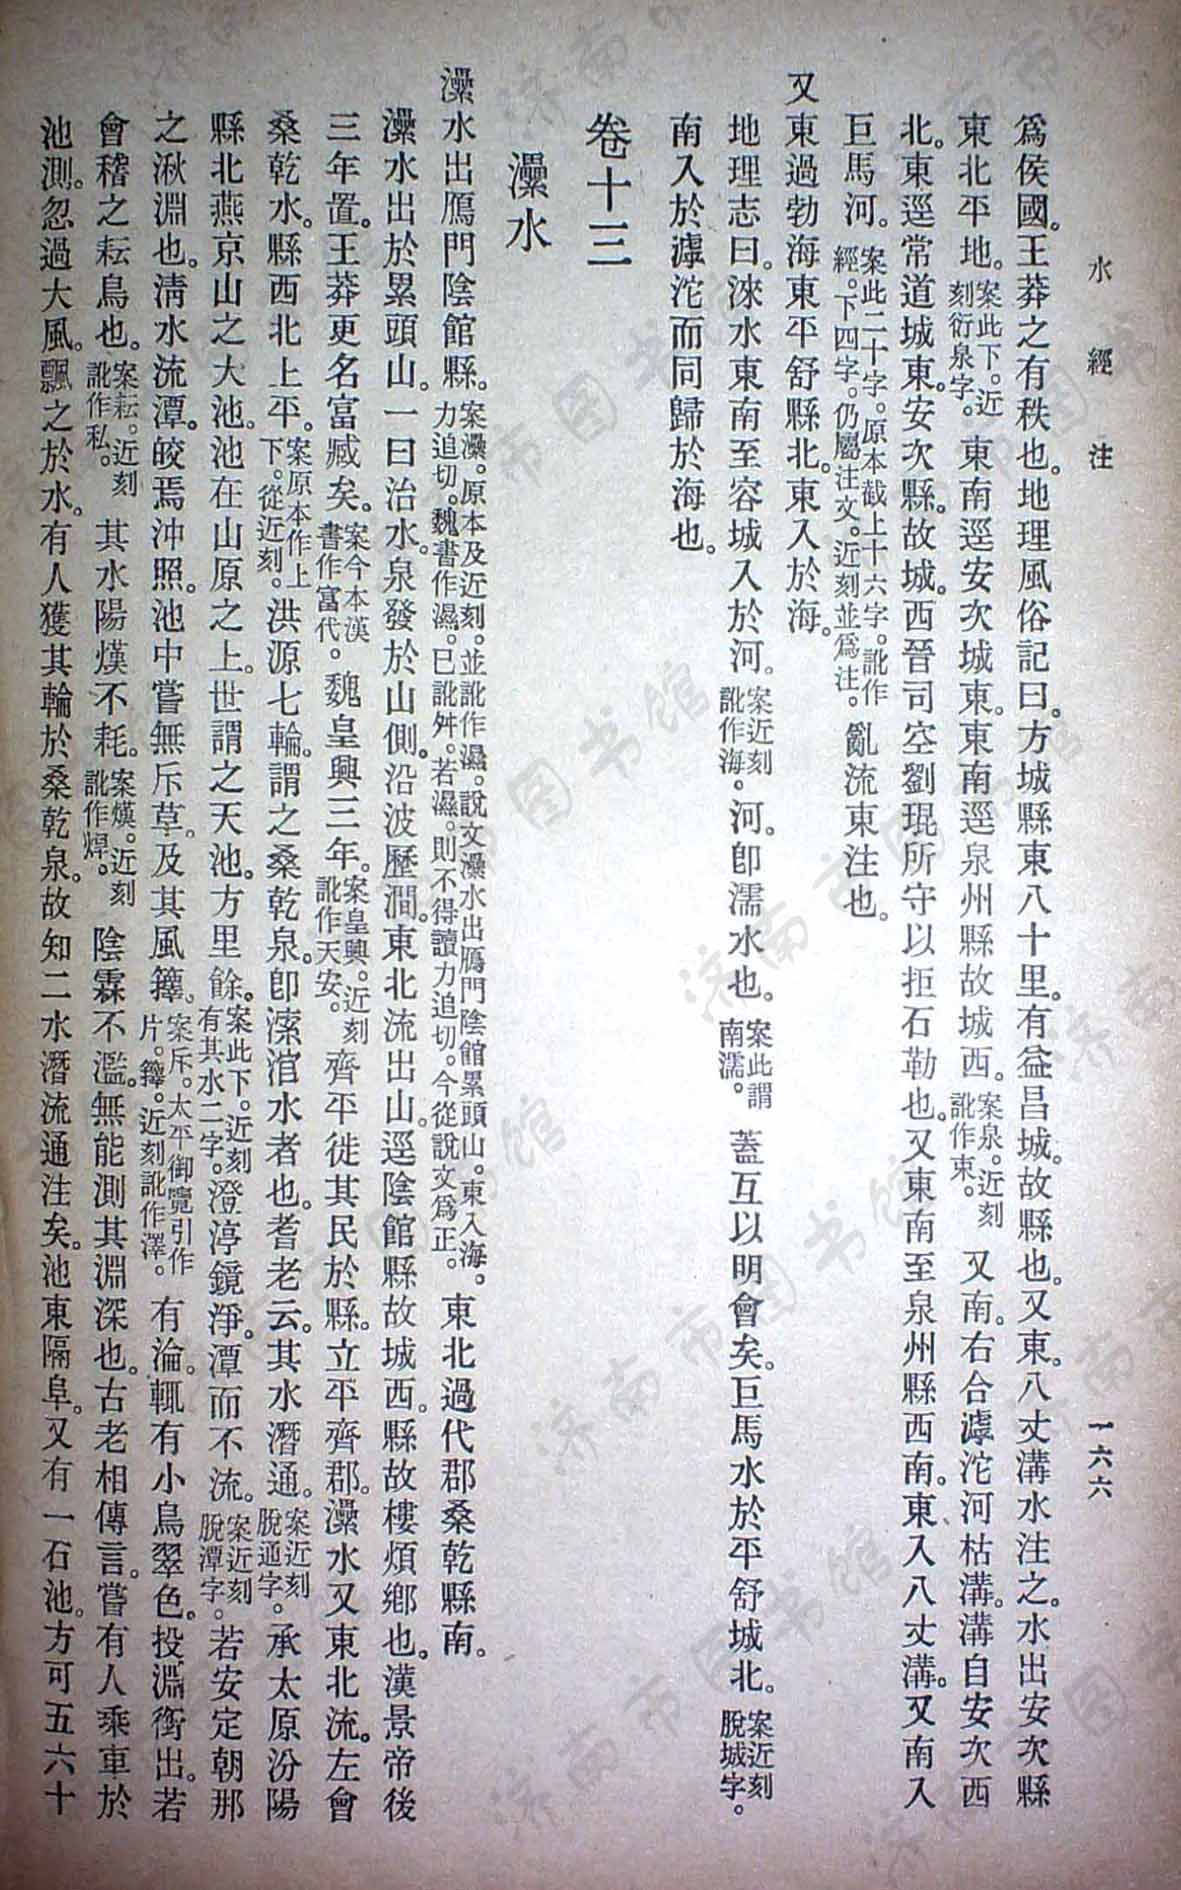 水經注
一六六
爲侯國。王莽之有秩也。地理風俗記曰。方城縣東八十里。有益昌城。故縣也。又東。八丈溝水注之。水出安次縣
東北平地。案此下。近刻衍泉字。東南逕安次城東。東南逕泉州縣故城西。案泉。近刻訛作東。又南。右合滹沱河枯溝。溝自安次西
北。東逕常道城東。安次縣。故城。西晉司空劉琨所守以拒石勒也。又東南至泉州縣西南。東入八丈溝。又南入
巨馬河。案此二十字。原本截上十六字。訛作經。下四字。仍屬注文。近刻並爲注。亂流東注也。
又東過勃海東平舒縣北。東入於海。
地理志曰。淶水東南至容城入於河。案近刻訛作海。河。卽濡水也。案此謂南濡。蓋互以明會矣。巨馬水於平舒城北。案近刻脫城字。
南入於滹沱而同歸於海也。
卷十三
㶟水
㶟水出鴈門陰館縣。案㶟。原本及近刻。並訛作濕。說文㶟水出鴈門陰館累頭山。東入海。力追切。魏書作濕。已訛舛。若濕。則不得讀力追切。今從說文爲正。東北過代郡桑乾縣南。
㶟水出於累頭山。一曰治水。泉發於山側。沿波歷澗。東北流出山。逕陰館縣故城西。縣故樓煩鄉也。漢景帝後
三年置。王莽更名富臧矣。案今本漢書作富代。魏皇興三年。案皇興。近刻訛作天安。齊平徙其民於縣。立平齊郡。㶟水又東北流。左會
桑乾水。縣西北上平。案原本作上下。從近刻。洪源七輪。謂之桑乾泉。卽溹涫水者也。耆老云。其水潛通。案近刻脫通字。承太原汾陽
縣北燕京山之大池。池在山原之上。世謂之天池。方里餘。案此下。近刻有其水二字。澄渟鏡淨。潭而不流。案近刻脫潭字。若安定朝那
之湫淵也。清水流潭。皎焉沖照。池中嘗無斥草。及其風籜。案斥。太平御覽引作片。籜。近刻訛作澤。有淪。輒有小鳥翠色。投淵銜出。若
會稽之耘鳥也。案耘。近刻訛作私。其水陽熯不耗。案熯。近刻訛作焊。陰霖不濫。無能測其淵深也。古老相傳言。嘗有人乘車於
池測。忽過大風。飄之於水。有人獲其輪於桑乾泉。故知二水潛流通注矣。池東隔阜。又有一石池。方可五六十